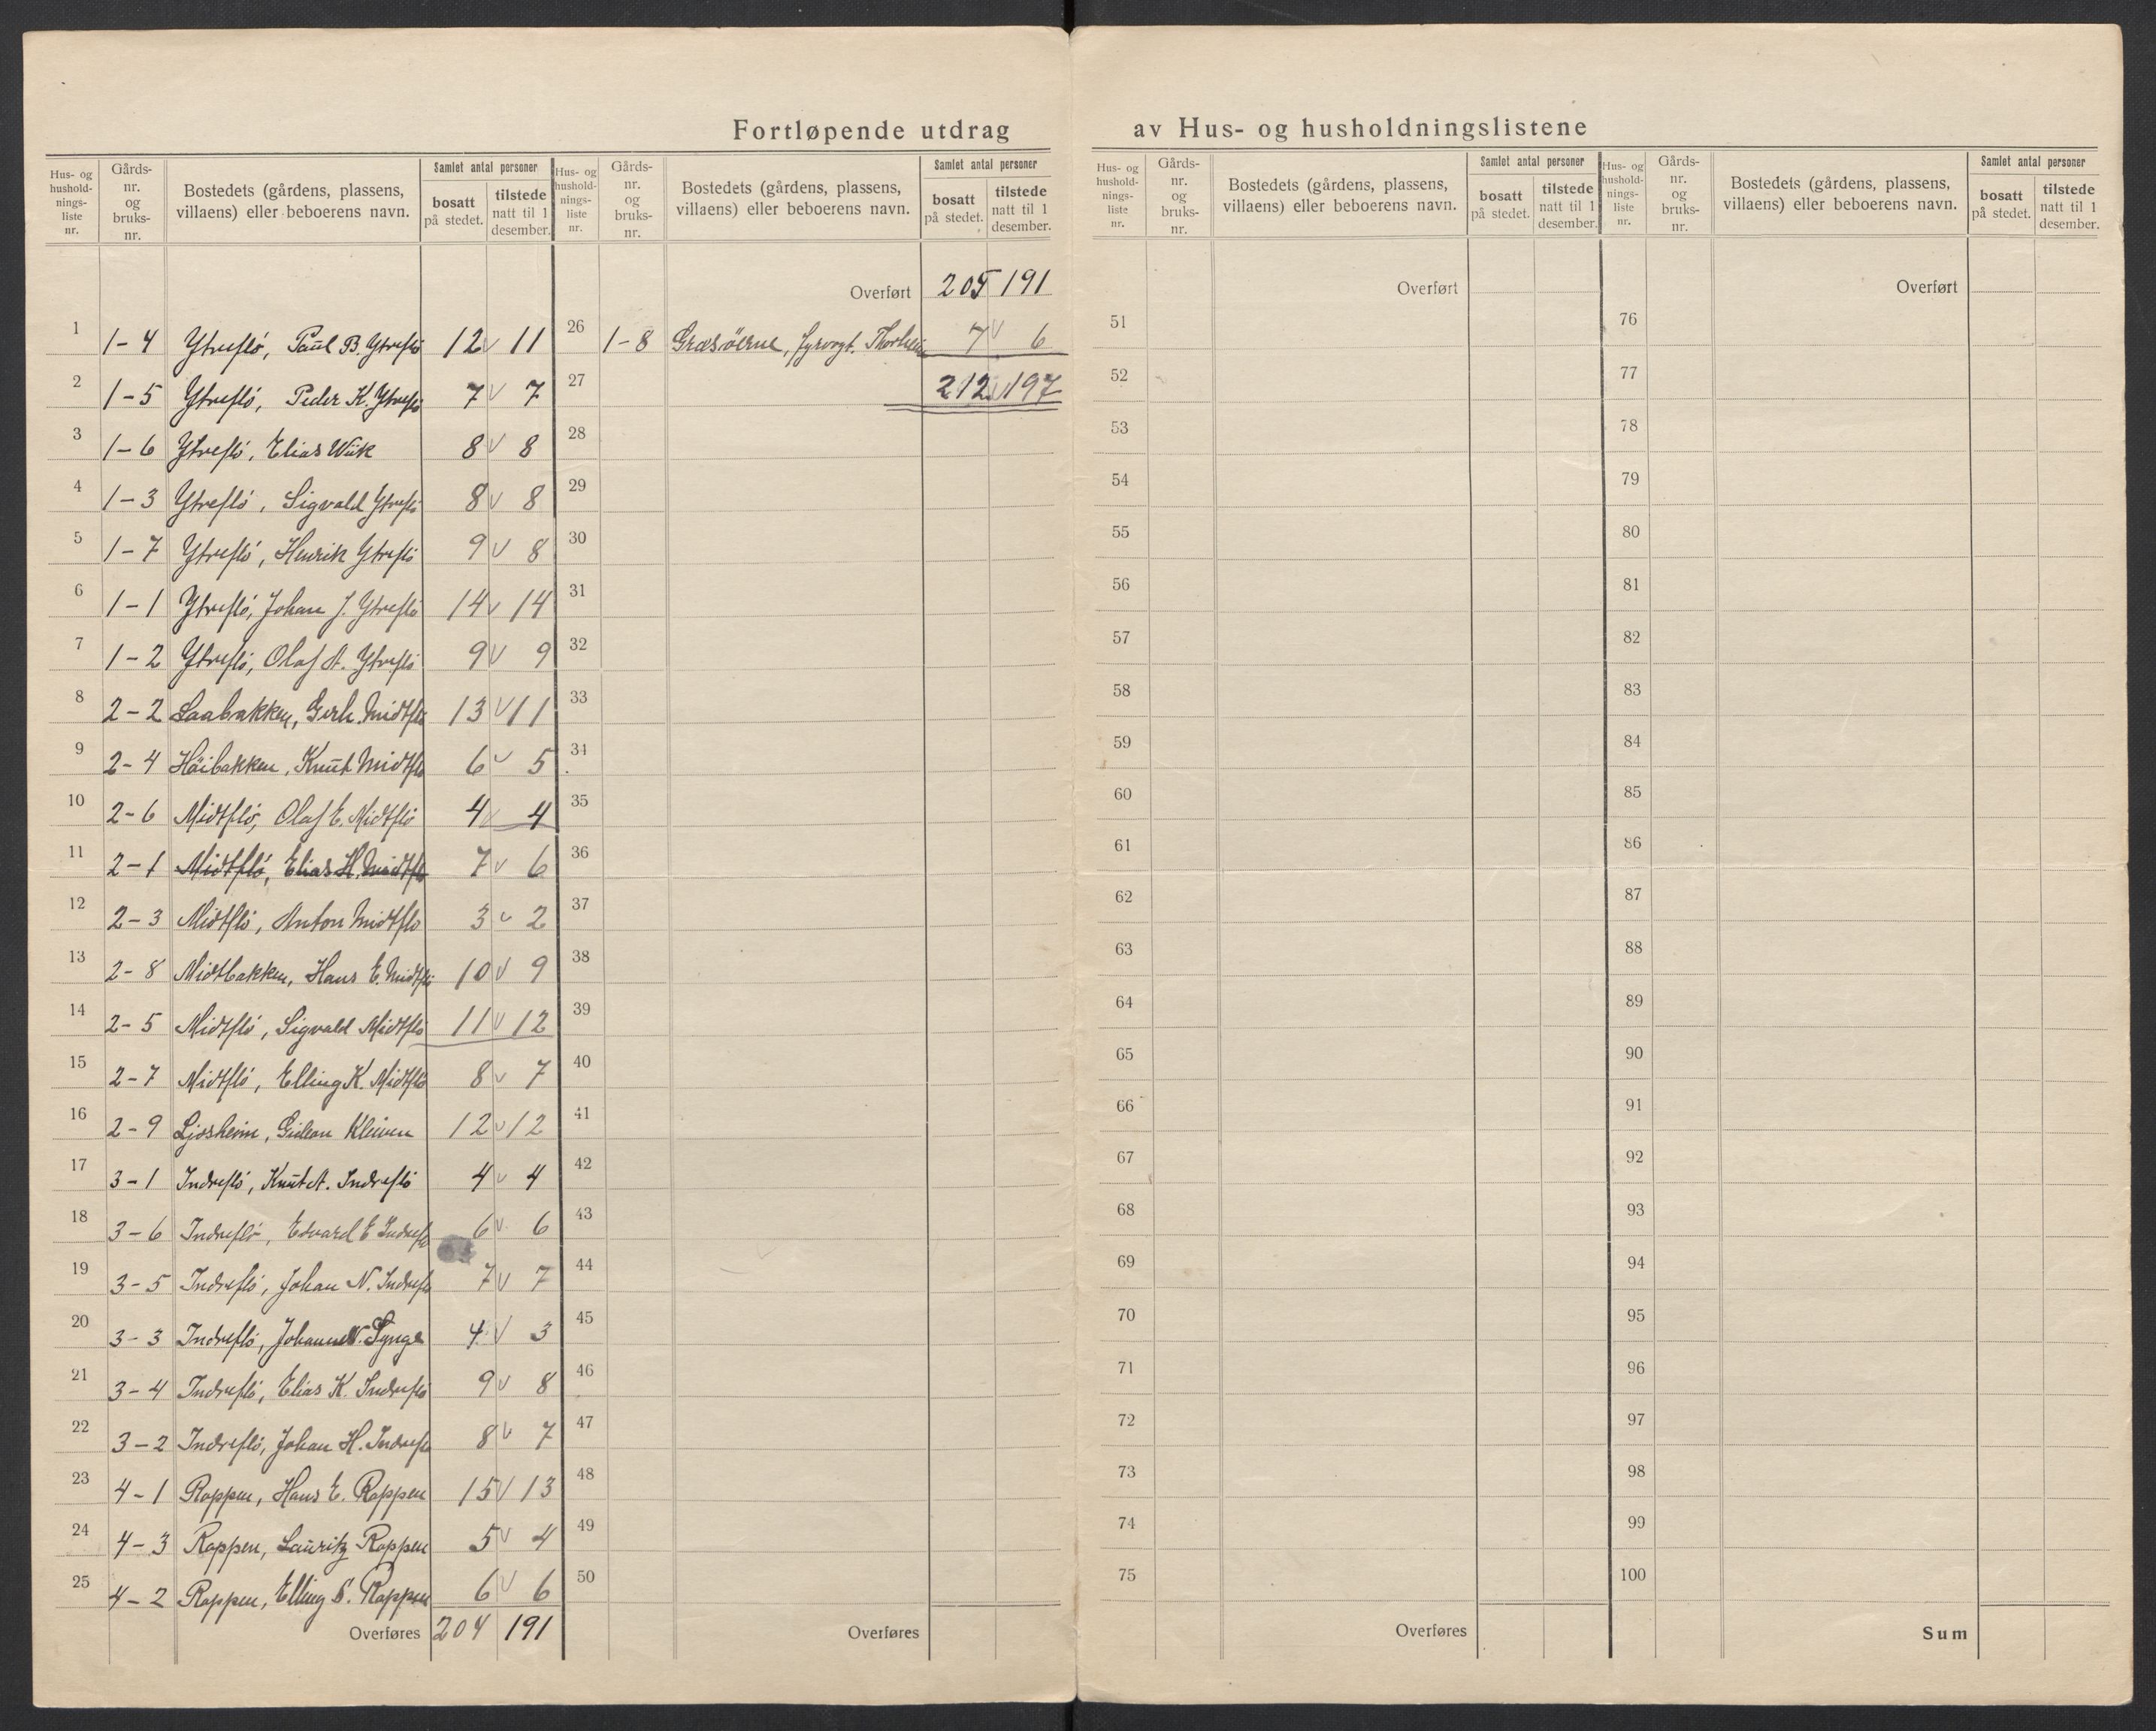 Fortløpende utdrag av Hus- og husholdningslistene
Hus- og hushold-nings-liste nr.
Gårds-nr. og bruks-nr.
Bostedets (gårdens, plassens, villaens) eller beboerens navn.
Samlet antal personer
bosatt på stedet.
tilstede natt til 1 desember.
1 1-4 Ytreflö, Paul B. Ytreflö 12 v 11
2 1-5 Ytreflö, Peder K. Ytreflö 7 v 7
3 1-6 Ytreflö, Elias Wiik 8 v 8
4 1-3 Ytreflö, Sigvald Ytreflö 8 v 8
5 1-7 Ytreflö, Henrik Ytreflö 9 v 8
6 1-1 Ytreflö, Johan J. Ytreflö 14 v 14
7 1-2 Ytreflö, Olaf A. Ytreflö 9 v 9
8 2-2 Laabakken, Gerh. Midtflö 13 v 11
9 2-4 Höibakken, Knut Midtflö 6 v 5
10 2-6 Midtflö, Olaf E. Midtflö 4 v 4
11 2-1 Midtflö, Elias H. Midtflö 7 v 6
12 2-3 Midtflö, Anton Midtflö 3 v 2
13 2-8 Midtbakken, Hans E. Midtflö 10 v 9
14 2-5 Midtflö, Sigvald Midtflö 11 v 12
15 2-7 Midtflö, Elling K. Midtflö 8 v 7
16 2-9 Ljosheim, Gideon Kleiven 12 v 12
17 3-1 Indreflö, Knut A. Indreflö 4 v 4
18 3-6 Indreflö, Edvard E Indreflö 6 v 6
19 3-5 Indreflö, Johan N. Indreflö 7 v 7
20 3-3 Indreflö, Johanne N. Synge 4 v 3
21 3-4 Indreflö, Elias K. Indreflö 9 v 8
22 3-2 Indreflö, Johan H. Indreflö 8 v 7
23 4-1 Roppen, Hans E. Roppen 15 v 13
24 4-3 Roppen, Lauritz Roppen 5 v 4
25 4-2 Roppen, Elling Roppen 6 v 6
Overføres 204 191
Hus- og hushold-nings-liste nr.
Gårds-nr. og bruks-nr.
Bostedets (gårdens, plassens, villaens) eller beboerens navn.
Samlet antal personer
bosatt på stedet.
tilstede natt til 1 desember.
Overført 205 191
26 1-8 Græsöerne, fyrvogt. 7 v 6
27 212 v 197
28
29
30
31
32
33
34
35
36
37
38
39
40
41
42
43
44
45
46
47
48
49
50
Overføres
Hus- og hushold-nings-liste nr.
Gårds-nr. og bruks-nr.
Bostedets (gårdens, plassens, villaens) eller beboerens navn.
Samlet antal personer
bosatt på stedet.
tilstede natt til 1 desember.
Overført
51
52
53
54
55
56
57
58
59
60
61
62
63
64
65
66
67
68
69
70
71
72
73
74
75
Overføres
Hus- og hushold-nings-liste nr.
Gårds-nr. og bruks-nr.
Bostedets (gårdens, plassens, villaens) eller beboerens navn.
Samlet antal personer
bosatt på stedet.
tilstede natt til 1 desember.
Overført
76
77
78
79
80
81
82
83
84
85
86
87
88
89
90
91
92
93
94
95
96
97
98
99
100
Sum